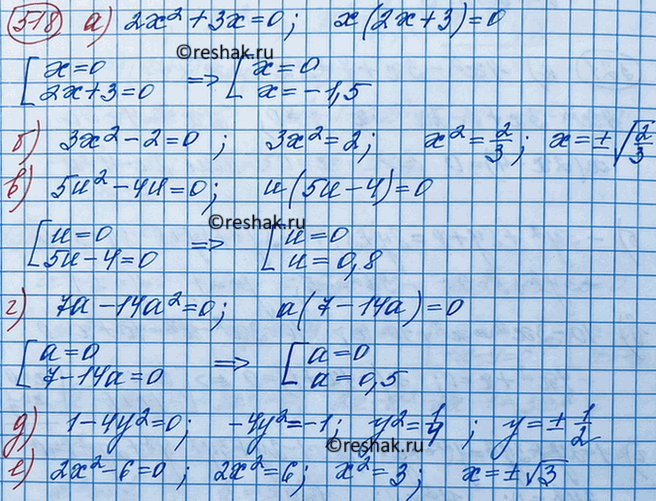 518 а) 2x² + 3x = 0; x(2x+3) = 0
©reshak.ru
[ x = 0 => [ x = 0
2x+3 = 0 x = -1,5
б) 3x² - 2 = 0; 3x² = 2; x² = 2/3; x = ±√(2/3)
в) 5u² - 4u = 0; u(5u-4) = 0
©reshak.ru
[ u = 0 => [ u = 0
5u-4 = 0 u = 0,8
г) 7a - 14a² = 0; a(7-14a) = 0
[ a = 0 => [ a = 0
7-14a = 0 a = 0,5
д) 1-4y² = 0; -4y² = -1; y² = 1/4; y = ± 1/2
©reshak.ru
е) 2x² - 6 = 0; 2x² = 6; x² = 3; x = ±√3